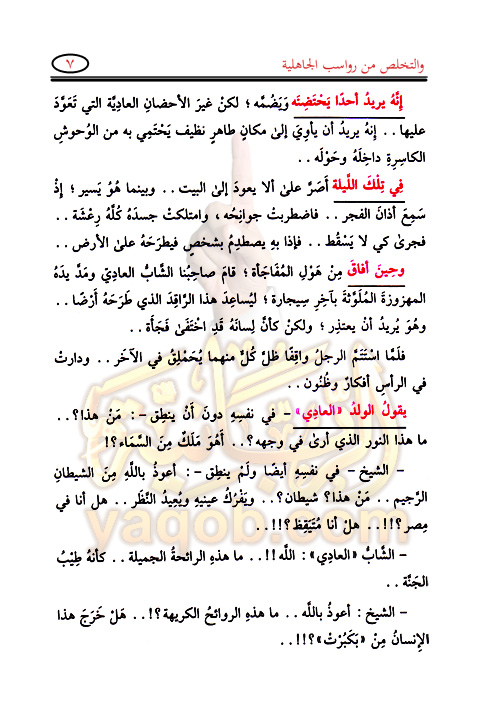 والتخلص من رواسب الجاهلية ٧
إِنَّهُ يريدُ أحدًا يَحْتَضِنَه وَيَضُمَّه ؛ لكنْ غيرَ الأحضانِ العاديَّة التي تَعَوَّدَ
عليها . . إنهُ يريدُ أن يأويَ إلىٰ مكانٍ طاهرٍ نظيف يَحْتَمِي به من الوُحوشِ
الكاسِرةِ داخِلَهُ وحَوْلَه . .
فِي تِلْكَ اللَّيلة أَصَرَّ علىٰ ألا يعودَ إلىٰ البيت . . وبينما هُوَ يَسير ؛ إِذْ
سَمِعَ أذانَ الفجر . . فاضطربتْ جوانِحُه ، وامتلكتْ جسدَهُ كُلَّهُ رِعْشَة . .
فجرىٰ كي لا يَسْقُط . . فإذا بهِ يصطدِمُ بشخصٍ فيطرَحَهُ علىٰ الأرض . .
وحِينَ أفاقَ مِنْ هَوْلِ المُفَاجَأة ؛ قامَ صاحِبُنا الشَّابُّ العاديّ ومَدَّ يدَهُ
المهزوزةَ المُلَوَّثةَ بآخِرِ سِيجارة ؛ ليُساعِدَ هذا الرَّاقِدَ الذي طَرَحَهُ أَرْضًا . .
وهُوَ يُريدُ أنْ يعتذِر ؛ ولكنْ كأنَّ لِسانَهُ قَدِ اخْتَفَىٰ فَجْأَة . .
فلَمَّا اسْتَتَمَّ الرجلُ واقِفًا ظلَّ كُلٌّ منهما يُحَمْلِقُ في الآخَر . . ودارتْ
في الرأسِ أفكارٌ وظُنُون . .
يقولُ الولدُ «العادِي» – في نفسِهِ دونَ أَنْ ينطِق – : مَنْ هذا؟ . .
ما هذا النور الذي أرىٰ في وجهه؟ . . أَهُوَ مَلَكٌ مِنَ السَّمَاء؟!
– الشيخ – في نفسِهِ أيضًا ولَمْ ينطِق – : أعوذُ باللَّهِ مِنَ الشيطانِ
الرَّجيم . . مَنْ هذا؟ شيطان؟ . . ويَفْرُكُ عينيهِ ويُعِيدُ النَّظَر . . هل أنا في
مِصر؟!! . . هلْ أنا مُتَيَقِظ؟!! . .
– الشَّابُّ «العادي» : اللَّه!! . . ما هذهِ الرائحةُ الجميلة . . كأنهُ طِيْبُ
الجَنَّة .
– الشيخ : أعوذُ باللَّه . . ما هذهِ الروائحُ الكريهة؟! . . هَلْ خَرَجَ هذا
الإِنسانُ مِنْ «بَكَبُرْتْ»؟!! . .
yaqob.com